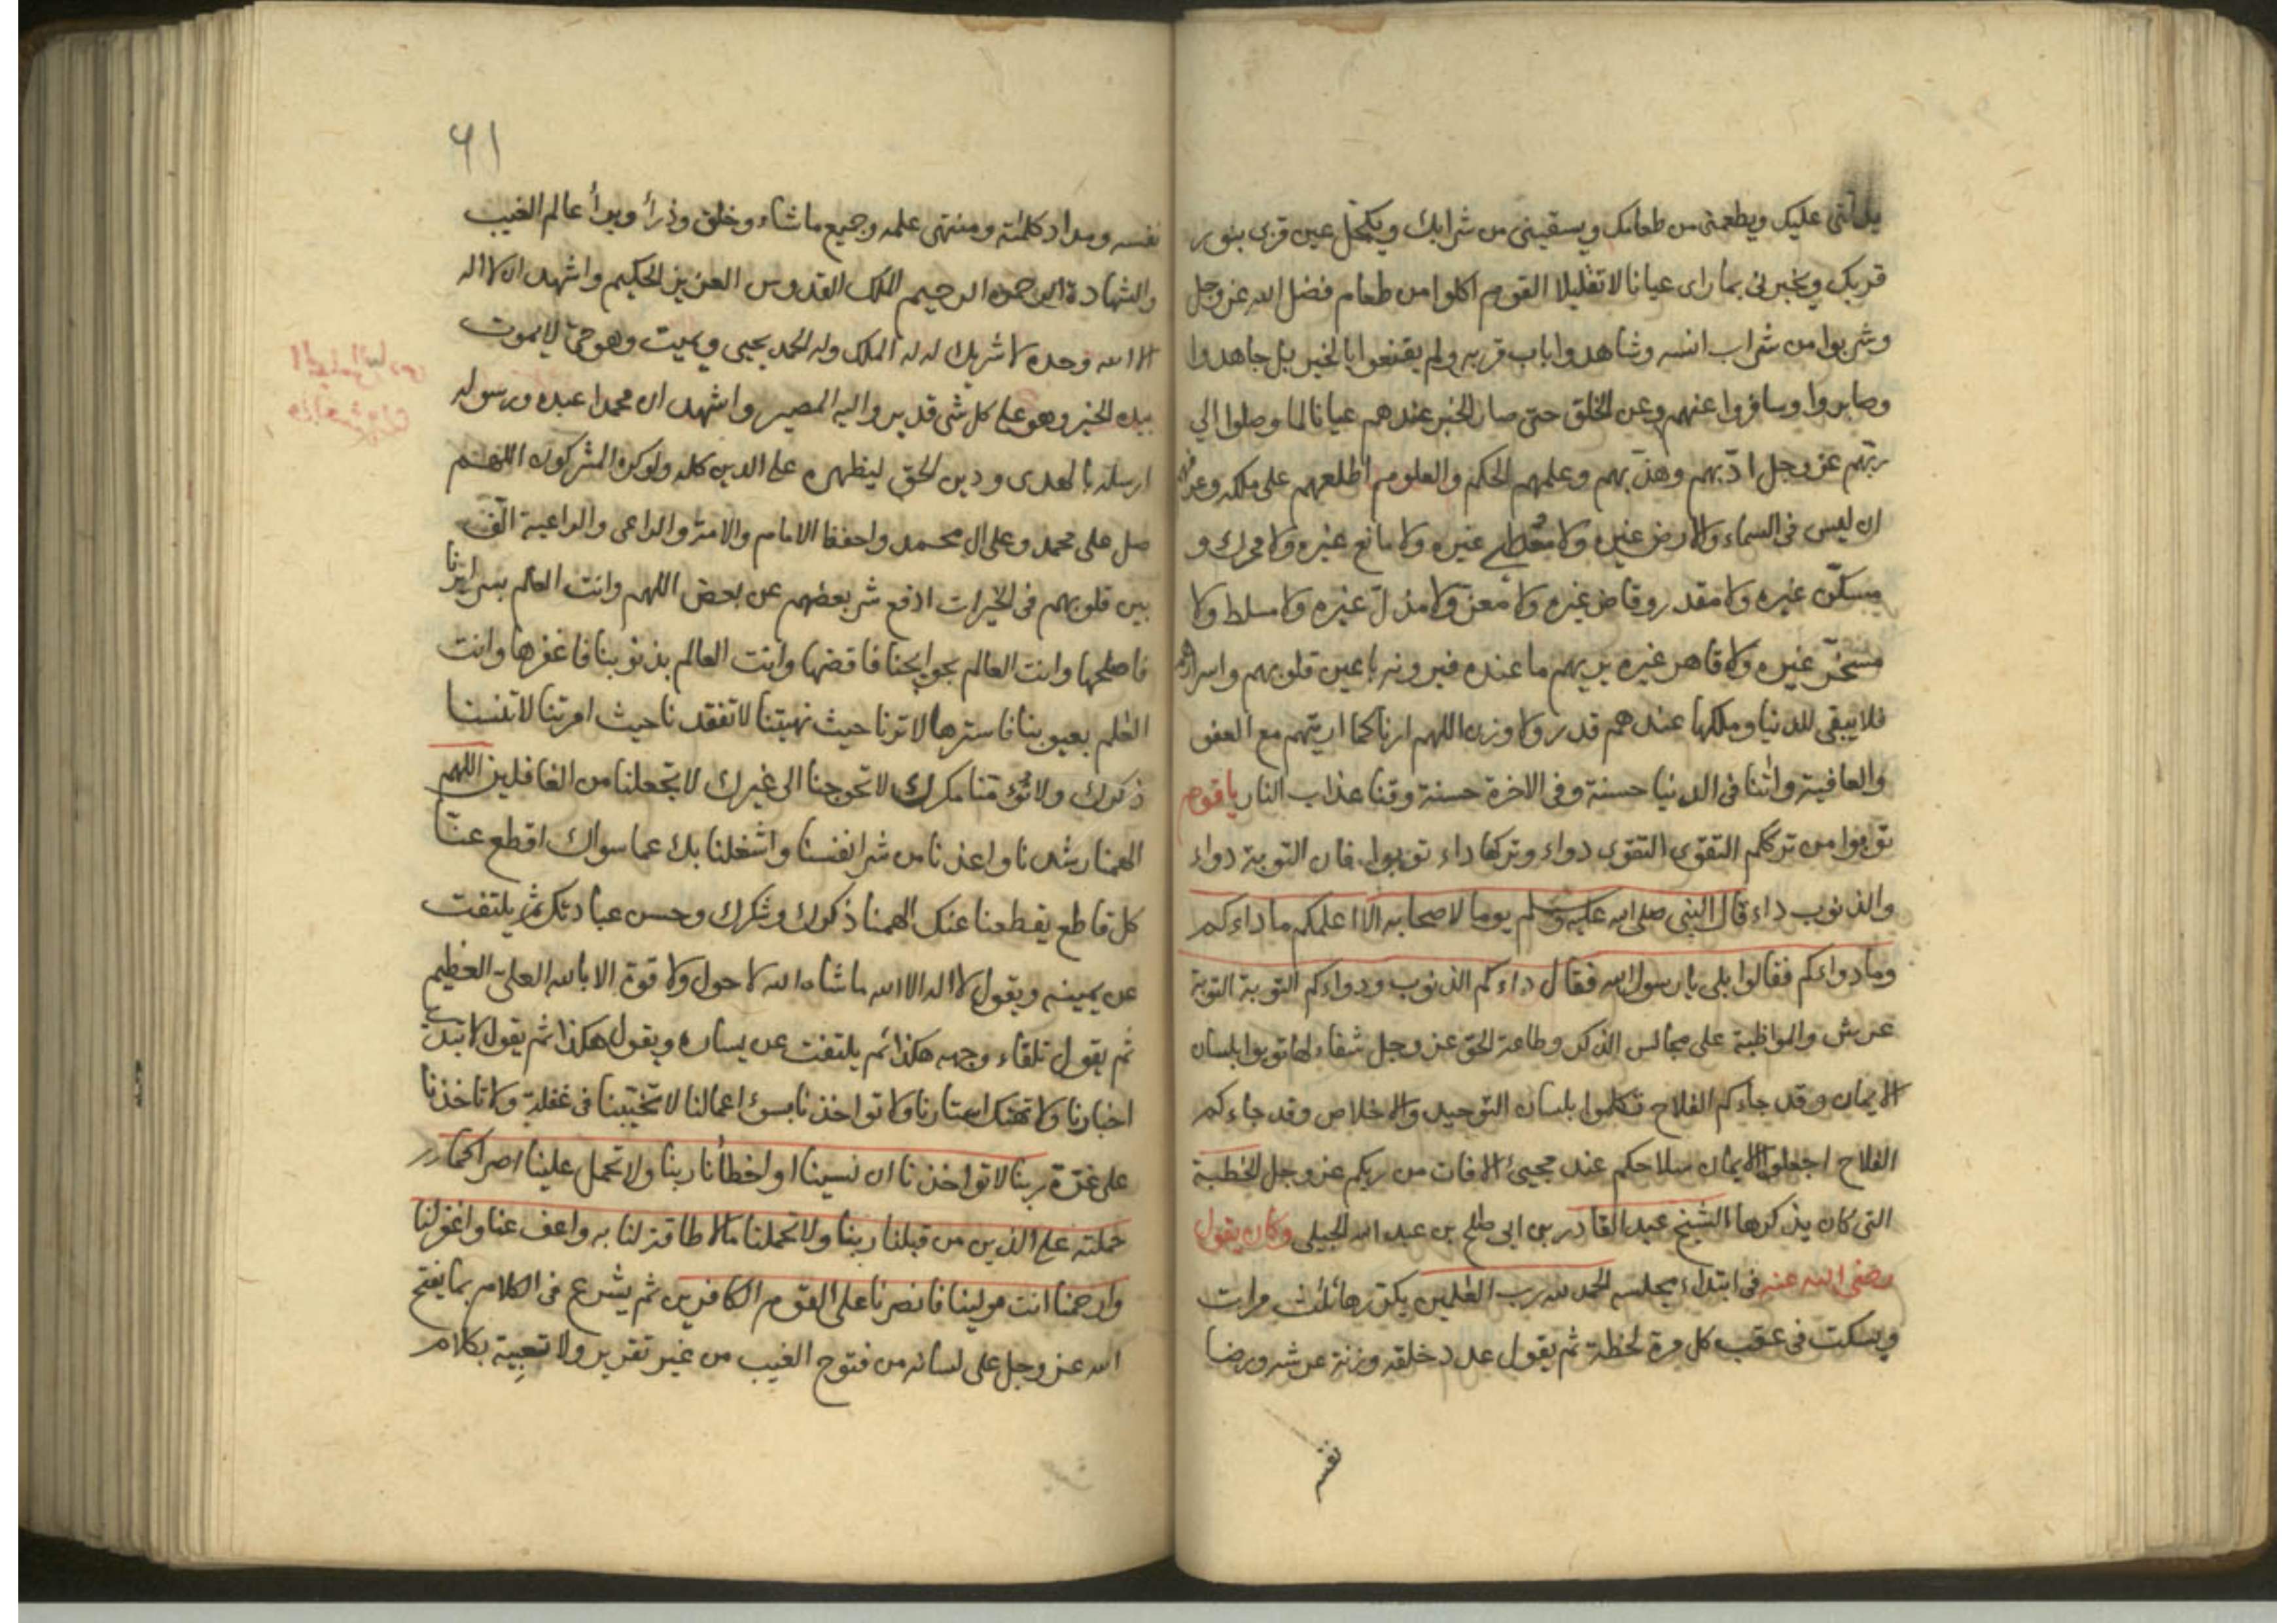 يدلني عليك ويطعمني من طعامك ويسقيني من شرابك ويكحل عين قربى بنور
قربك ويخبرني بما راى عيانا لا تقليلا القوم اكلوا من طعام فضل الله عز وجل
وشربوا من شراب انسه وشاهدوا باب قربه ولم يقنعوا بالخبر بل جاهدوا
وصابروا وسافروا عنهم وعن الخلق حتى صار الخبر عندهم عيانا لما وصلوا الي
ربهم عز وجل ادّبهم وهذّبهم وعلمهم الحكم والعلوم اطلعهم على ملكه وعرفهم
ان ليس فى السماء والارض غيره ولا معطي غيره ولا مانع غيره ولا محرك و
مسكّن غيره ولا مقدر وقاض غيره ولا معز ولا مذلّ غيره ولا مسلط ولا
مسخّر غيره ولا قاهر غيره يريهم ما عنده فيرونه باعين قلوبهم واسرارهم
فلا يبقى للدنيا وملكها عندهم قدر ولا وزن اللهم ارنا كما اريتهم مع العفو
والعافية واتنا فى الدنيا حسنة وفى الاخرة حسنة وقنا عذاب النار ياقوم
توبوا من ترككم التقوى التقوى دواء وتركها داء توبوا فان التوبة دواء
والذنوب داء قال النبي صلى الله عليه وسلم يوما لاصحابه الا اعلمكم ما داءكم
وما دواءكم فقالوا بلى يا رسول الله فقال داءكم الذنوب ودواءكم التوبة التوبة
عرش والمواظبة على مجالس الذكر وطاعة الحق عز وجل شفاء لها توبوا بلسان
الايمان وقد جاءكم الفلاح تكلموا بلسان التوحيد والاخلاص وقد جاءكم
الفلاح اجعلوا الايمان سلاحكم عند مجيئ الافات من ربكم عز وجل الخطبة
التى كان يذكرها الشيخ عبد القادر بن ابى صلح بن عبد الله الجيلى وكان يقول
رضى الله عنه فى ابتداء مجلسه الحمد لله رب العلمين يكررها ثلث مرات
ويسكت فى عقب كل مرة لحظة ثم يقول عدد خلقه وزنة عرشه ورضا
نفسه
٦١
نفسه ومداد كلماته ومنتهى علمه وجميع ما شاء وخلق وذرأ وبرأ عالم الغيب
والشهادة الرحمن الرحيم الملك القدوس العزيز الحكيم واشهد ان لا اله
الا الله وحده لا شريك له له الملك وله الحمد يحيى ويميت وهو حيّ لا يموت
بيده الخير وهو على كل شى قدير واليه المصير واشهد ان محمدا عبده ورسوله
ارسله بالهدى ودين الحق ليظهره على الدين كله ولو كره المشركون اللهم
صل على محمد وعلى ال محمد واحفظ الامام والامة والراعى والراعية الّف
بين قلوبهم فى الخيرات ادفع شر بعضهم عن بعض اللهم وانت العالم بسرايرنا
فاصلحها وانت العالم بحوايجنا فاقضها وانت العالم بذنوبنا فاغفرها وانت
العلم بعيوبنا فاسترها لا ترنا حيث نهيتنا لا تفقدنا حيث امرتنا لا تنسنا
ذكرك ولا تؤمنا مكرك لا تحوجنا الى غيرك لا تجعلنا من الغافلين اللهم
الهمنا رشدنا واعذنا من شر انفسنا واشغلنا بك عما سواك اقطع عنّا
كل قاطع يقطعنا عنك الهمنا ذكرك وشكرك وحسن عبادتك ثم يلتفت
عن يمينه ويقول لا اله الا الله ما شاء الله لا حول ولا قوة الا بالله العلى العظيم
ثم يقول تلقاء وجهه هكذا ثم يلتفت عن يساره ويقول هكذا ثم يقول لا تبد
اخبارنا ولا تهتك استارنا ولا تواخذنا بسوء اعمالنا لا تحيينا فى غفلة ولا تاخذنا
على غرّة ربنا لا تواخذنا ان نسينا او اخطأنا ربنا ولا تحمل علينا اصرا كما
حملته على الذين من قبلنا ربنا ولا تحملنا مالا طاقة لنا به واعف عنا واغفر لنا
وارحمنا انت مولينا فانصرنا على القوم الكافرين ثم يشرع فى الكلام بما يفتح
الله عز وجل على لسانه من فتوح الغيب من غير تقرير ولا تعبية بكلام